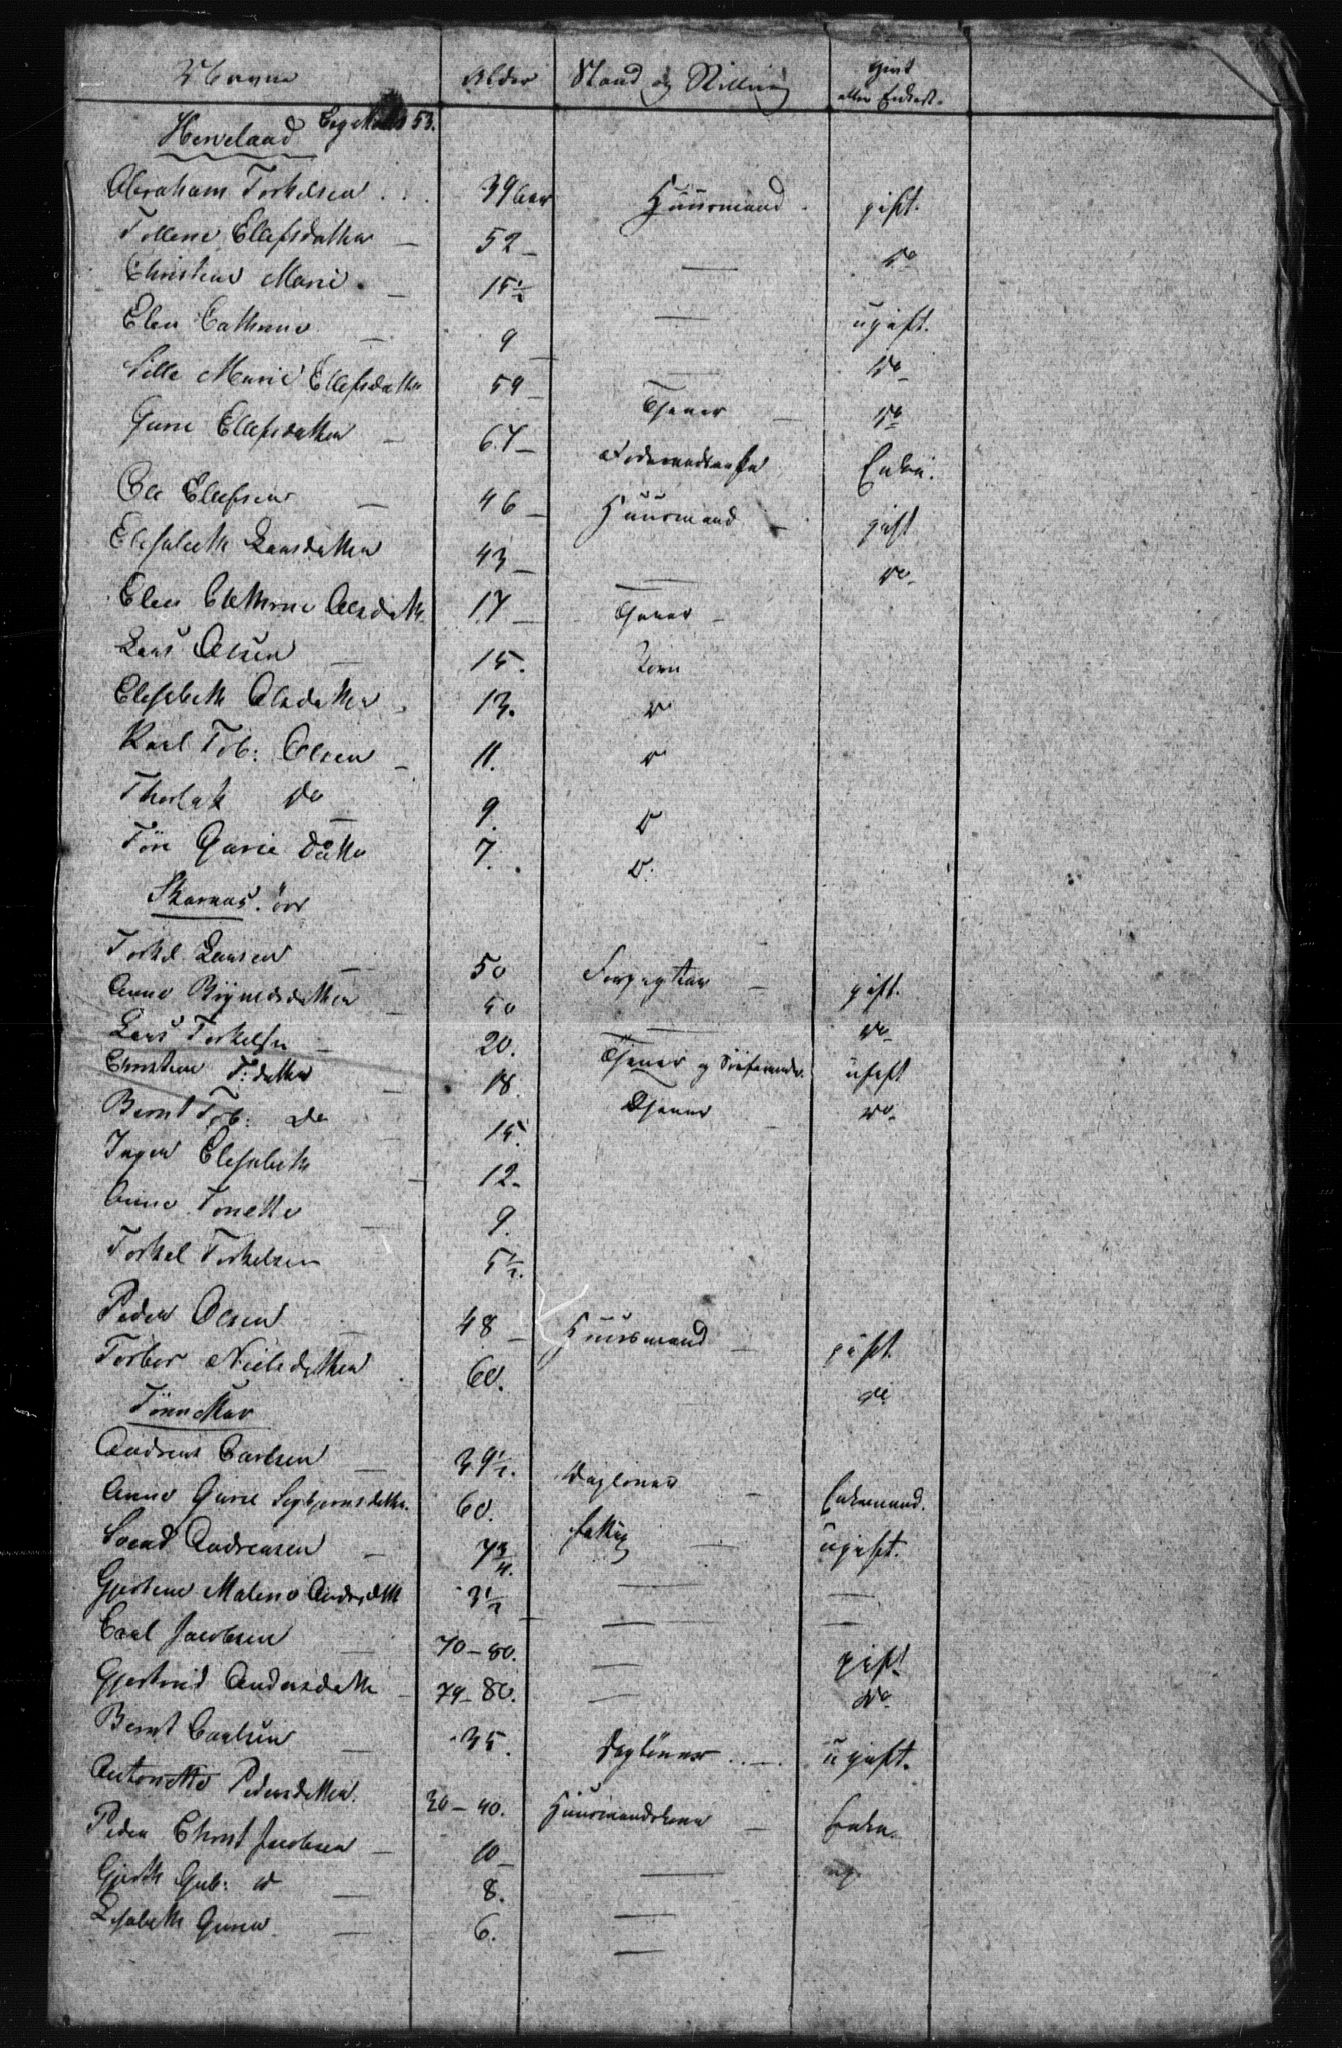 Navne Alder Stand og Stilling givt eller Enkest.
Hervelaad 53.
Abraham Torkelsen 39 aar Huusmand gift.
Tollene Ellefsdatter 52 — do
Christine Marie 15½ — ugift.
Elen Cathrine 9 — do
Sille Marie Ellefsdatter 59 Tjener do
Gune Ellefsdatter 67 Enke.
Ole Ellefsen 46 Huusmand gift
Elisabeth Larsdatter 43 — do
Elen Cathrine Olsdatt. 17 Tjener
Lars Olsen 15. Børn
Elisabeth Olsdatter 13. do
Karl Tob: Olsen 11. do
Thorlak do 9. do
Töre Gurie Datter 7. do
Skarnæs
Torkel Larsen 50 Forpagter gift.
Anne Büynildsdatter 50 — do
Lars Torkelsen 20. Tjener og ugift
Christine T: datter 18. Tjener do
Bernt Tob: do 15.
Inger Elisabeth 12.
Anne Tonette 9.
Torkel Torkelsen 5½.
Peder Olsen 48 Huusmand gift.
Torbor Nielsdatter 60. do
Andreas Carlsen 39½. Daglønner Enkemand.
Anne Gurie Sigbjørnsdatter 60. fattig ugift.
Svend Andreasen 7¾. — —
Gjertine Malene Andrsdatt 3½ — —
Carl Jacobsen 70–80. — gift
Gjertrud Andersdatter 79–80. — do
Bernt Carlsen 35. Daglönner ugift.
Antonette Pedersdatter. 30–40. Huusmandskone Enke.
Peder Christ Jacobsen 10 — ug.
Gjerth Gub: do 8. —
Lisabeth Gurie 6. —